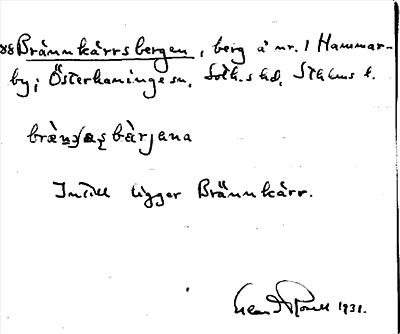 88 Brännkärrsbergen, berg å nr. 1 Hammar-
by, i Österhaninge sn, Soth.s hd, Sthlms l.
bärjana
Intill ligger Brännkärr.
1931.